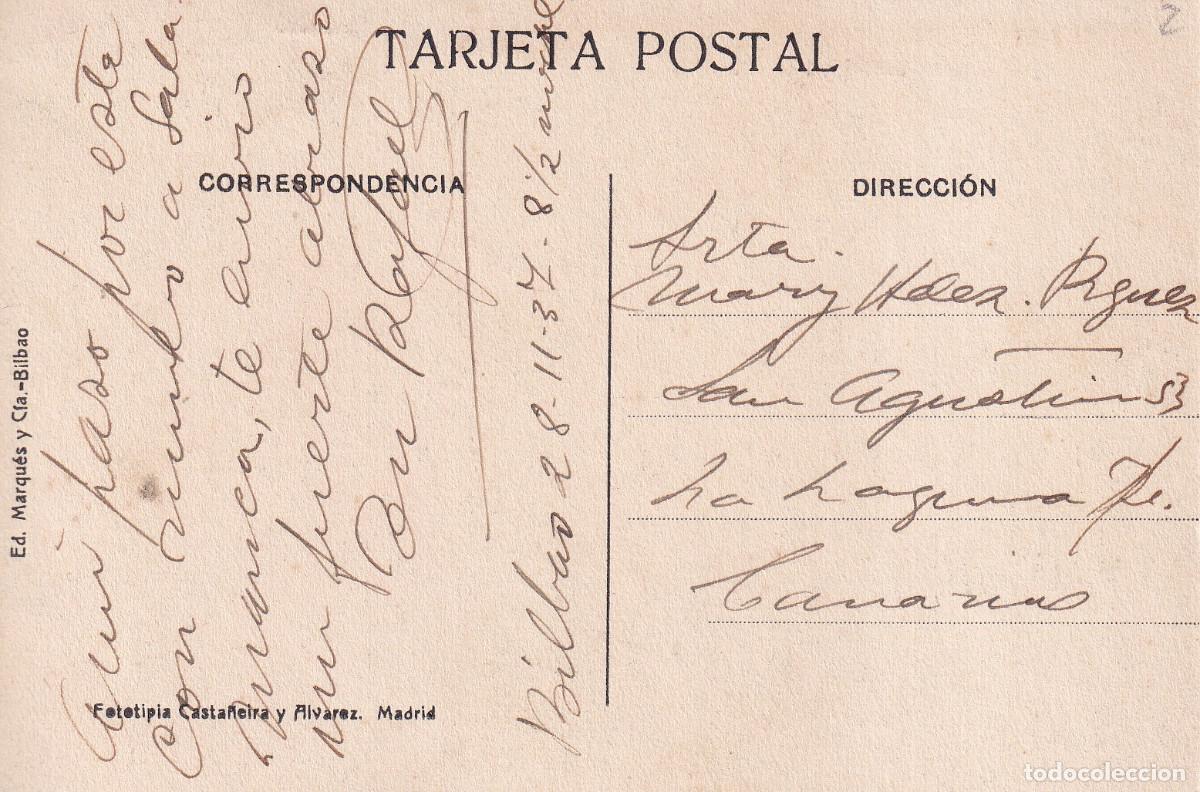 TARJETA POSTAL
2
CORRESPONDENCIA
DIRECCIÓN
paso por esta
con rumbo a Sala-
manca, te envio
un fuerte abrazo
Rafael
Bilbao 28-11-37-8½
Srta.
Mary Hdez. Rguez
San Agustin 53
La Laguna Tfe.
Canarias
Ed. Marqués y Cía.-Bilbao
Fototipia Castañeira y Alvarez. Madrid
todocoleccion